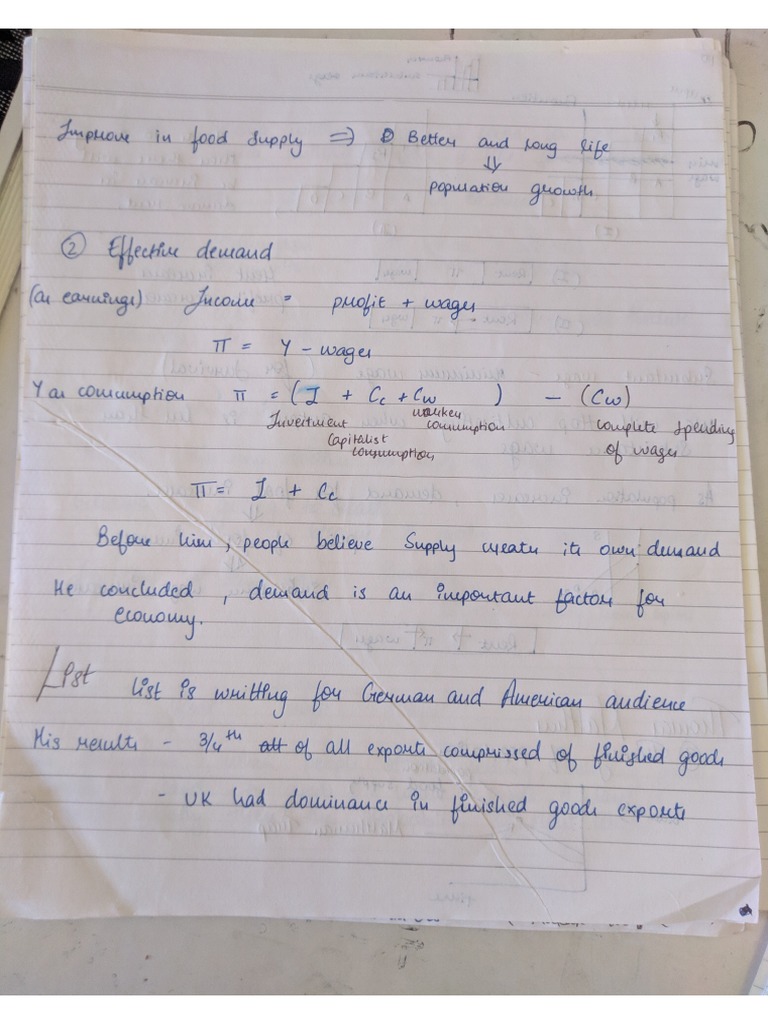 Improve in food supply => Better and long life
⇓
population growth
② Effective demand
(as earnings) Income = profit + wages
π = Y - wages
Y as consumption π = (I + Cc + Cw ) - (Cw)
Investment Capitalist consumption worker consumption complete spending of wages
π = I + Cc
Before him, people believe supply creates its own demand
He concluded, demand is an important factor for
economy.
List
List is writting for German and American audience
His results - 3/4th of all exports comprissed of finished goods
- UK had dominance in finished goods exports